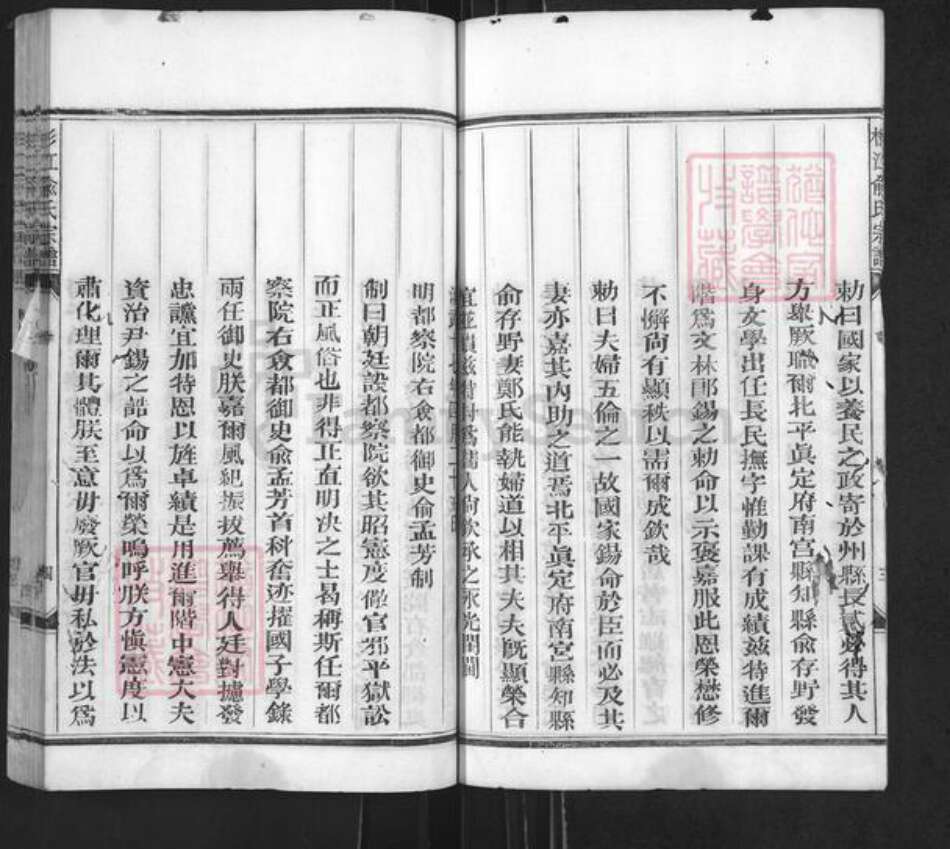 勅曰國家以養民之政寄於州縣長貳必得其人
方舉厥職爾北平眞定府南宫縣知縣俞存野發
身文學出任長民撫字惟勤課有成績茲特進爾
階爲文林郎錫之勅命以示褒嘉服此恩榮懋修
不懈尚有顯秩以需爾成欽哉
勅曰夫婦五倫之一故國家錫命於臣而必及其
妻亦嘉其内助之道焉北平眞定府南宫縣知縣
俞存野妻鄭氏能執婦道以相其夫夫既顯榮合
承光閨闥
明都察院右僉都御史俞孟芳制
制曰朝廷設都察院欲其昭憲度儆官邪平獄訟
而正風俗也非得正直明决之士曷稱斯任爾都
察院右僉都御史俞孟芳首科奮迹擢國子學錄
兩任御史朕嘉爾風紀振拔薦舉得人廷對攄發
忠讜宜加特恩以旌卓績是用進爾階中憲大夫
資治尹錫之誥命以爲爾榮嗚呼朕方愼憲度以
肅化理爾其體朕至意毋廢厥官毋私於法以爲
俞氏宗譜